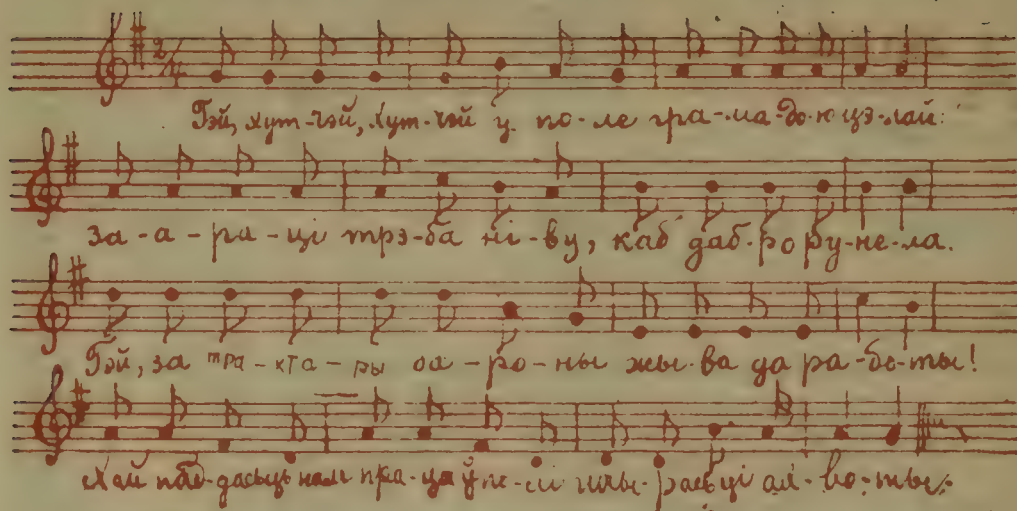 2/4
Гэй, хут-чэй, хут-чэй у по-ле гра-ма-до-ю цэ-лай:
за-а-ра-ці трэ-ба ні-ву, каб даб-ро ру-не-ла.
Гэй, за тра-кта-ры ба-ро-ны жы-ва да ра-бо-ты!
Хай пад-дасьць нам пра-ца ў пе-